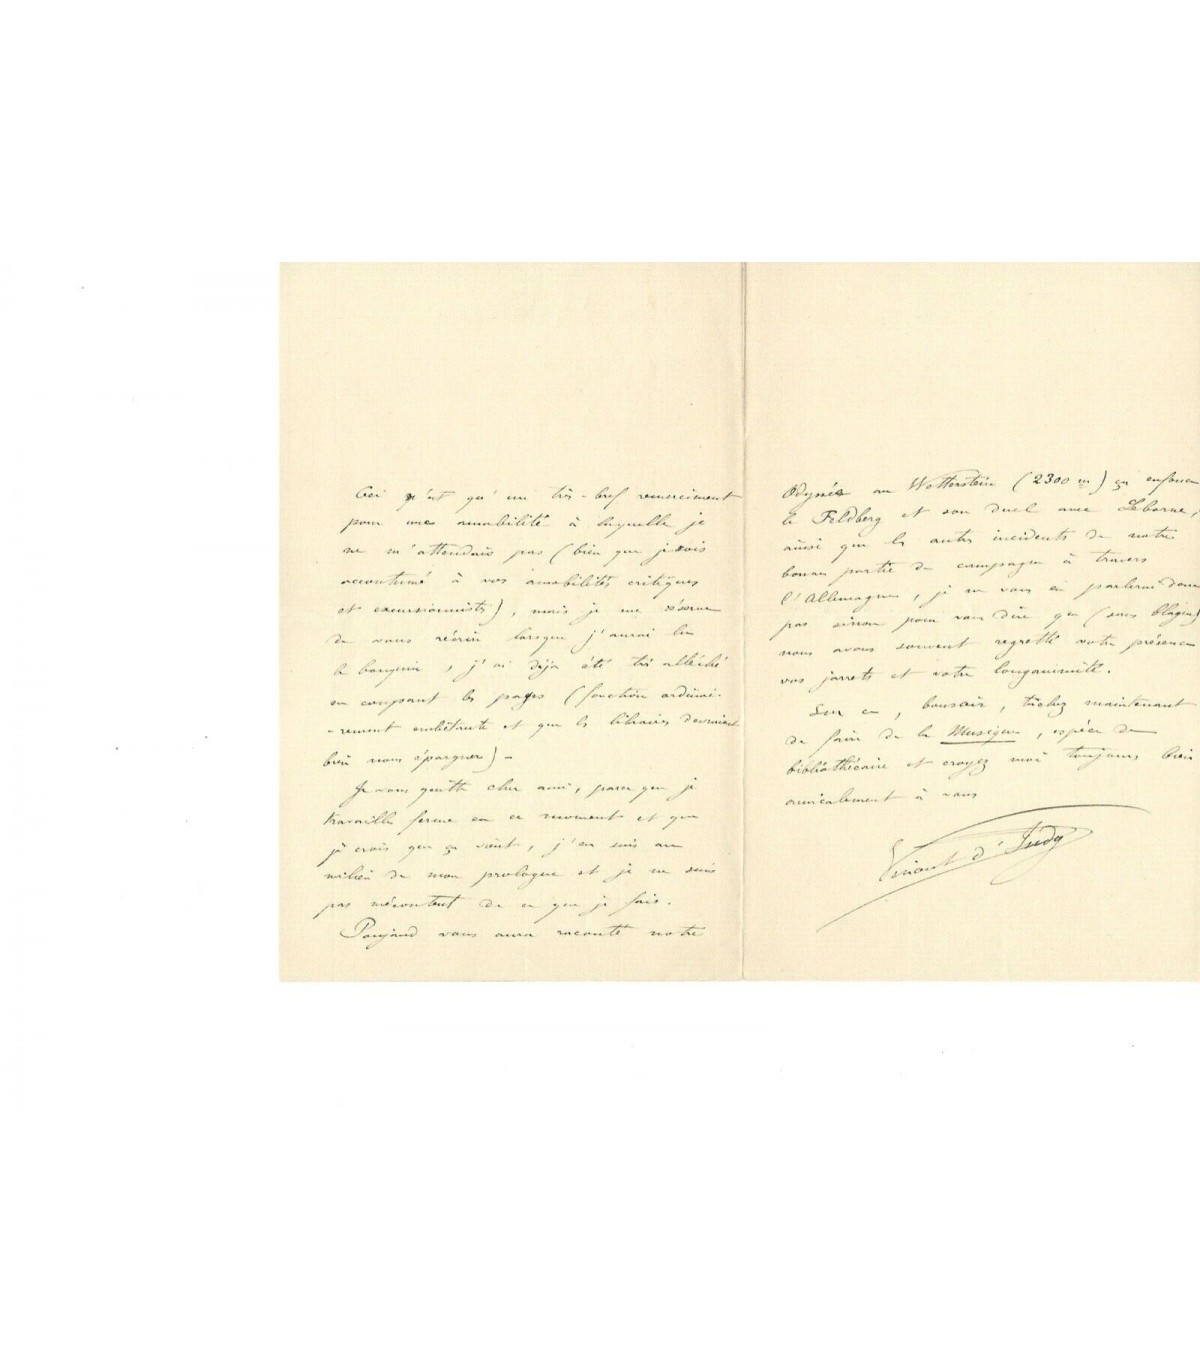 Ceci n'est qu'un très-bref remerciment
pour une amabilité à laquelle je
ne m'attendais pas (bien que je sois
accoutumé à vos amabilités critiques
et excursionnistes), mais je me réserve
de vous récrire lorsque j'aurai lu
le bouquin, j'ai déja été très alléché
en coupant les pages (fonction ordinai-
-rement embêtante et que les libraires devraient
bien nous épargner) -
Je vous quitte cher ami, parce que je
travaille ferme en ce moment et que
je crois que ça vient, j'en suis au
milieu de mon prologue et je ne suis
pas mécontent de ce que je fais.
Poujaud vous aura raconté notre
Odyssée au Wetterstein (2300 m) ça enfonce
le Feldberg et son duel avec Leborne,
ainsi que les autres incidents de notre
bonne partie de campagne à travers
l'Allemagne, je ne vous en parlerai donc
pas sinon pour vous dire que (sans blague)
nous avons souvent regretté votre présence
vos jarrets et votre longanimité.
Sur ce, bonsoir, tâchez maintenant
de faire de la Musique, espèce de
bibliothécaire et croyez moi toujours bien
amicalement à vous
Vincent d'Indy